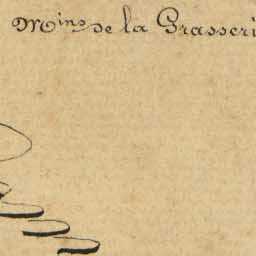 Mins de la Grasseri